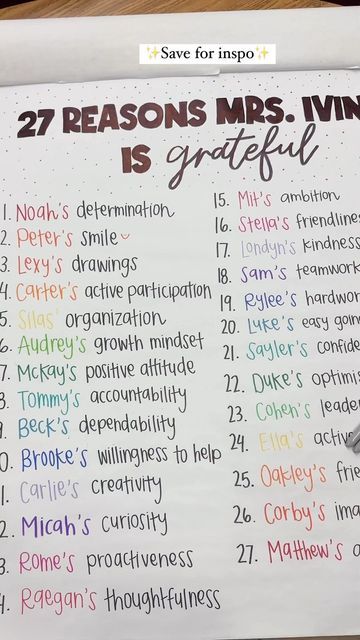 ✨Save for inspo✨
27 REASONS MRS. IVIN
IS grateful
1. Noah's determination
2. Peter's smile
3. Lexy's drawings
4. Carter's active participation
5. Silas' organization
6. Audrey's growth mindset
7. McKay's positive attitude
8. Tommy's accountability
9. Beck's dependability
0. Brooke's willingness to help
1. Carlie's creativity
2. Micah's curiosity
3. Rome's proactiveness
4. Raegan's thoughtfulness
15. Mit's ambition
16. Stella's friendlines
17. Londyn's kindness
18. Sam's teamwork
19. Rylee's hardwor
20. Luke's easy goin
21. Sayler's confide
22. Duke's optimis
23. Cohen's leader
24. Ella's activ
25. Oakley's frie
26. Corby's ima
27. Matthew's